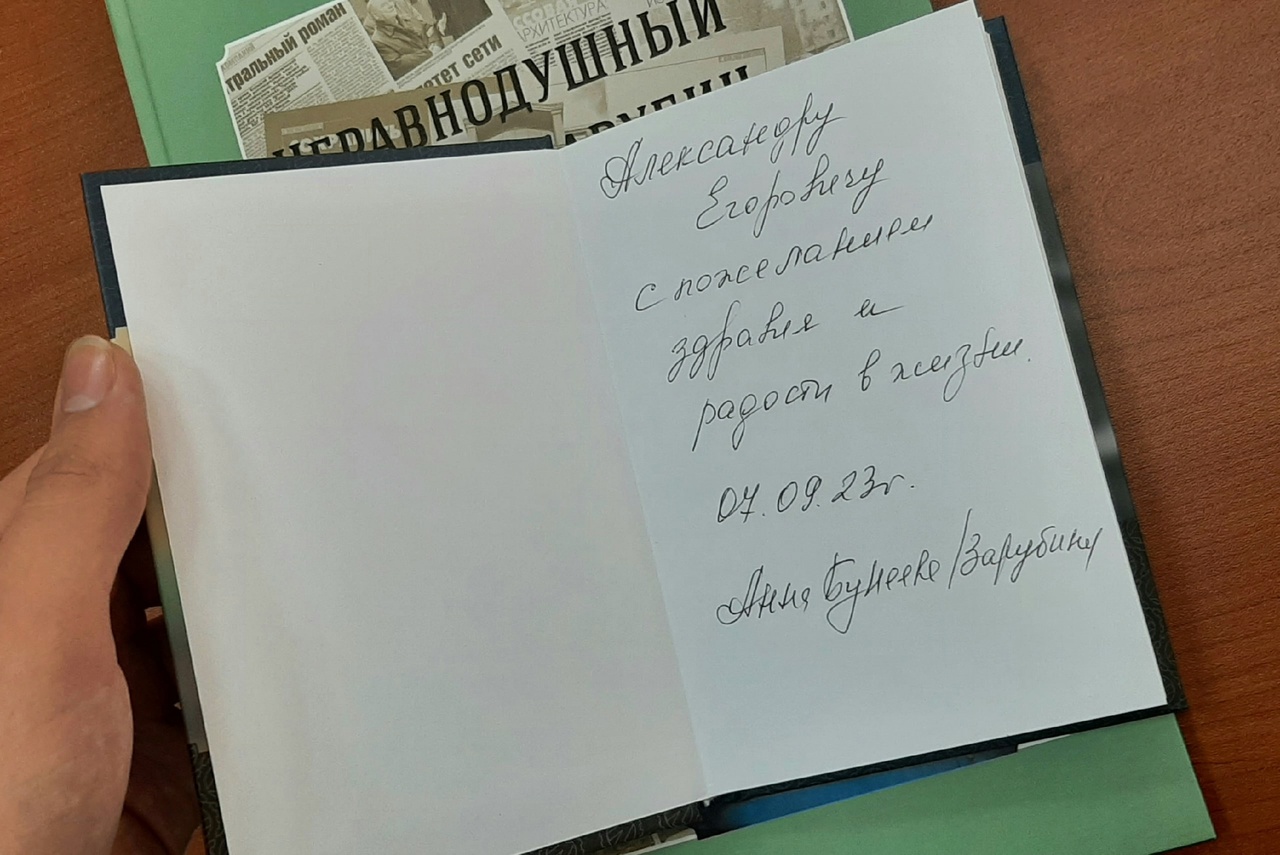 тральный роман
тетет сети
АРХИТЕКТУРА
НЕРАВНОДУШНЫЙ
Александру
Егоровичу
с пожеланием
здравия и
радости в жизни.
07.09.23г.
Анна /Зарубину